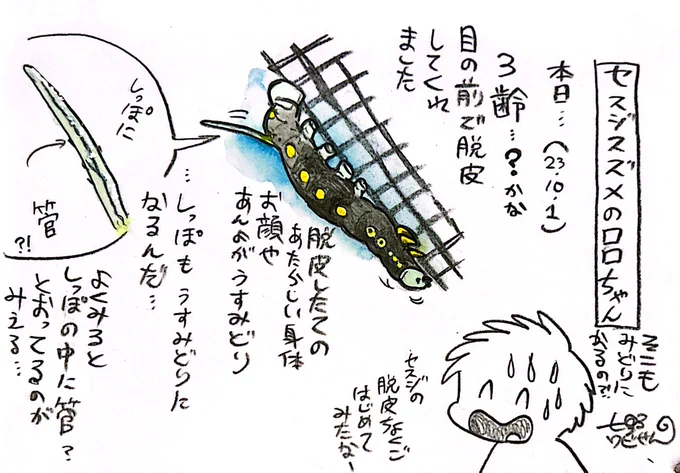 セスジスズメのロロちゃん
本日…(23.10.1)
3齢…?かな
目の前で脱皮
してくれ
ました
脱皮したての
あたらしい身体
お顔や
あんよがうすみどり
…しっぽもうすみどりに
なるんだ…
しっぽに
管
?!
よくみると
しっぽの中に管?
とおってるのが
みえる…
そこも
みどりに
なるの?!
セスジの
脱皮ちょくご
はじめて
みたなー